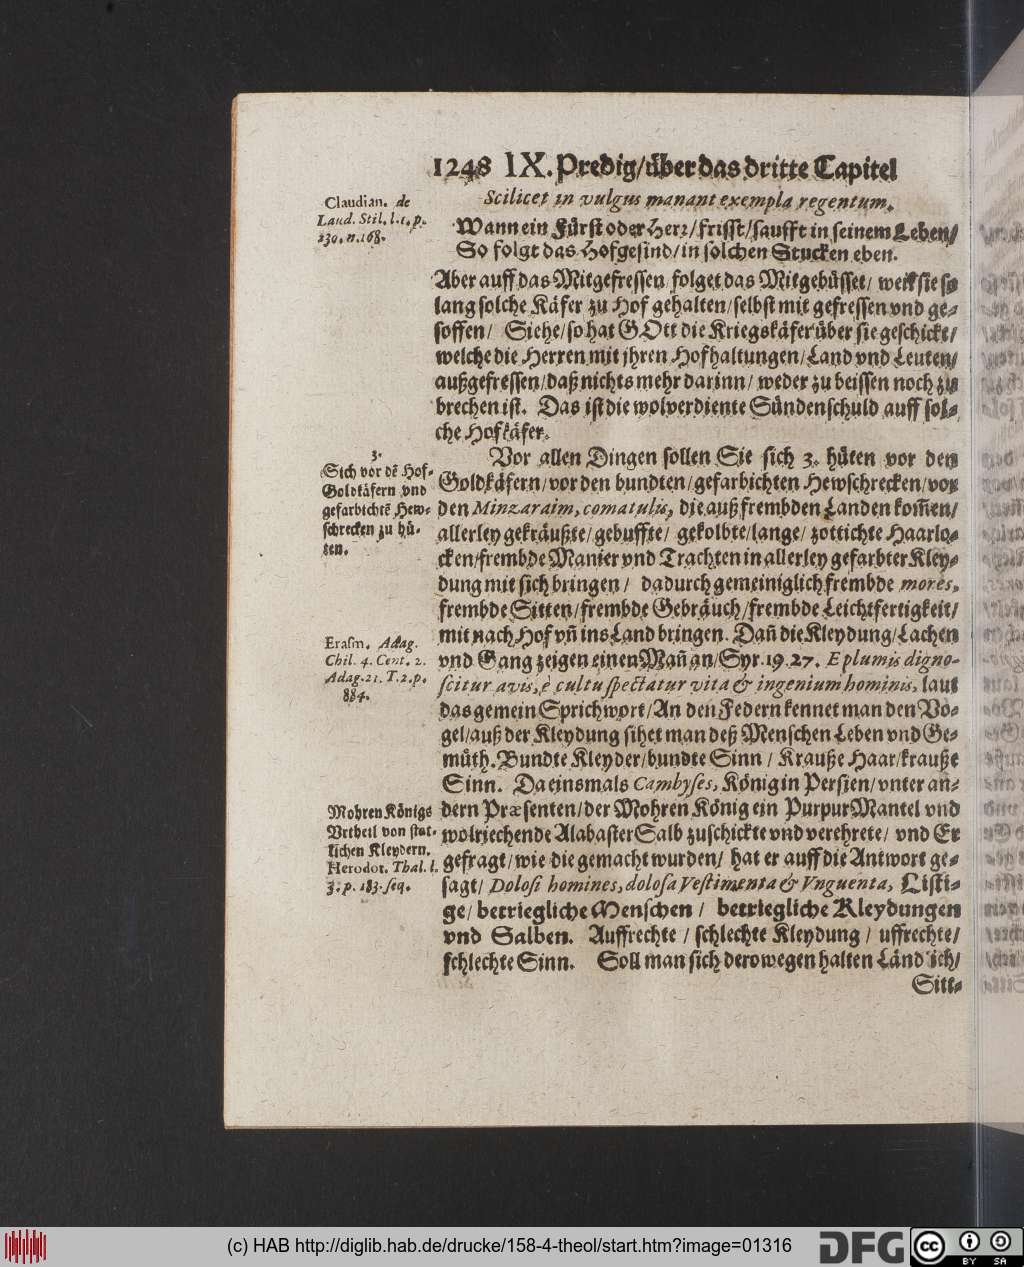 1248 IX. Predig/über das dritte Capitel
Claudian. de
Laud. Stil. l. 1. p.
230. n. 168.
Scilicet in vulgus manant exempla regentum.
Wann ein Fürst oder Herr/frisst/saufft in seinem Leben/
So folgt das Hofgesind/in solchen Stucken eben.
Aber auff das Mitgefressen folget das Mitgebüsset/ weil sie so
lang solche Käfer zu Hof gehalten/selbst mit gefressen vnd ge-
soffen/ Siehe/so hat GOtt die Kriegskäfer über sie geschickt/
welche die Herren mit jhren Hofhaltungen/Land vnd Leuten/
außgefressen/daß nichts mehr darinn/ weder zu beissen noch zu
brechen ist. Das ist die wolverdiente Sündenschuld auff sol-
che Hofkäfer.
3.
Sich vor dẽ Hof-
Goldkäfern vnd
gefarbichtẽ Hew-
schrecken zu hü-
ten.
Vor allen Dingen sollen Sie sich 3. hüten vor den
Goldkäfern/vor den bundten/gefarbichten Hewschrecken/vor
den Minzaraim, comatulis, die auß frembden Landen kom̃en/
allerley gekräußte/gebuffte/ gekolbte/lange/ zottichte Haarlo-
cken/frembde Manier vnd Trachten in allerley gefarbter Kley-
dung mit sich bringen/ dadurch gemeiniglich frembde mores,
frembde Sitten/frembde Gebräuch/frembde Leichtfertigkeit/
mit nach Hof vñ ins Land bringen. Dañ die Kleydung/Lachen
vnd Gang zeigen einen Mañ an/Syr. 19. 27. E plumis digno-
scitur avis, è cultu spectatur vita & ingenium hominis, laut
das gemein Sprichwort/An den Federn kennet man den Vo-
gel/auß der Kleydung sihet man deß Menschen Leben vnd Ge-
müth. Bundte Kleyder/bundte Sinn/ Krauße Haar/krauße
Sinn. Da einsmals Cambyses, König in Persien/vnter an-
dern Præsenten/der Mohren König ein Purpur Mantel vnd
wolriechende Alabaster Salb zuschickte vnd verehrete/ vnd Er
gefragt/wie die gemacht wurden/ hat er auff die Antwort ge-
sagt/ Dolosi homines, dolosa Vestimenta & Vnguenta, Listi-
ge/ betriegliche Menschen/ betriegliche Kleydungen
vnd Salben. Auffrechte/ schlechte Kleydung/ uffrechte/
schlechte Sinn. Soll man sich derowegen halten Länd'ich/
Sitt-
Erasm. Adag.
Chil. 4. Cent. 2.
Adag. 21. T. 2. p.
884.
Mohren Königs
Vrtheil von stat-
lichen Kleydern.
Herodot. Thal. l.
3. p. 183. seq.
(c) HAB http://diglib.hab.de/drucke/158-4-theol/start.htm?image=01316
DFG
cc
BY SA